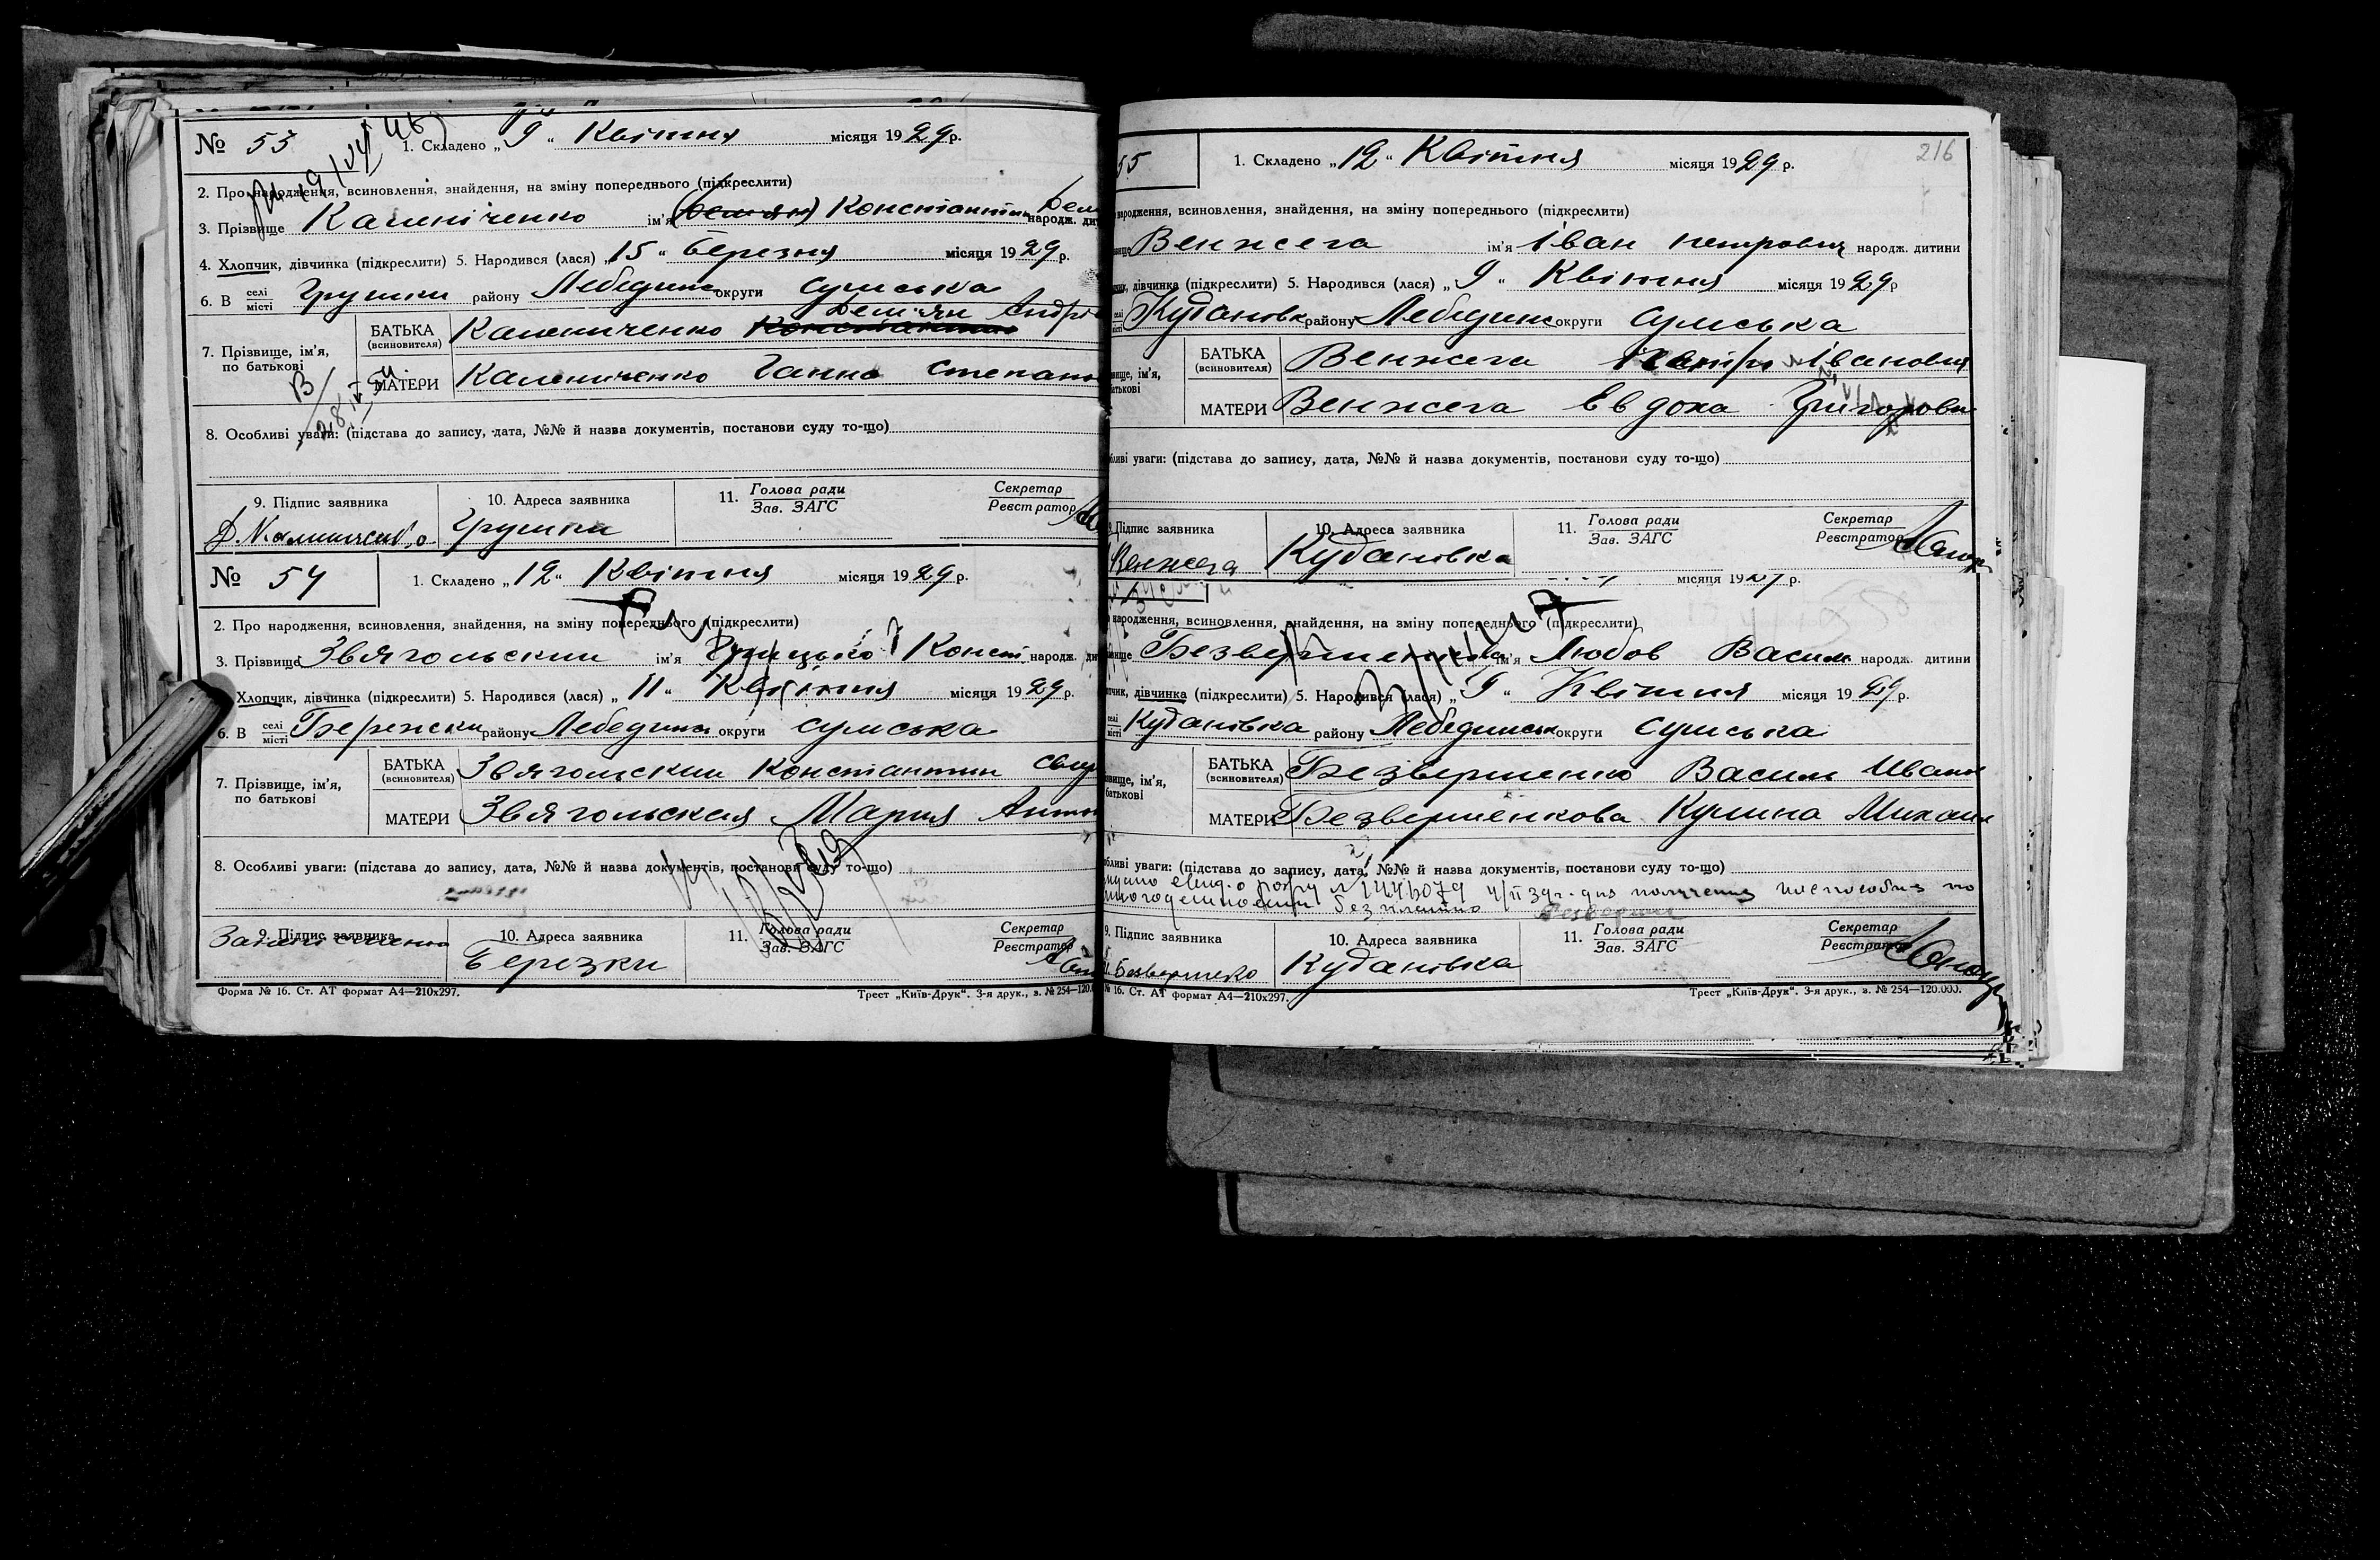 № 53
1. Складено „ 9 “ Квітня місяця 1929 р.
2. Про народження, всиновлення, знайдення, на зміну попереднього (підкреслити)
3. Прізвище Калениченко ім'я (Демян) Константин Дем народж. ди
4. Хлопчик, дівчинка (підкреслити) 5. Народився (лася) „ 15 “ березня місяця 1929 р.
6. В селі місті Грушки району Лебединс округи Сумська
Дем'ян Андрі
7. Прізвище, ім'я, по батькові
БАТЬКА (всиновителя) Калениченко Константин
МАТЕРИ Калениченко Ганна Степано
8. Особливі уваги: (підстава до запису, дата, №№ й назва документів, постанови суду то-що)
9. Підпис заявника 10. Адреса заявника 11. Голова ради Зав. ЗАГС Секретар Реєстратор
Грушки
№ 54
1. Складено „ 12 “ Квітня місяця 1929 р.
2. Про народження, всиновлення, знайдення, на зміну попереднього (підкреслити)
3. Прізвище Звягольский ім'я Грицько Конст народж. ди
Хлопчик, дівчинка (підкреслити) 5. Народився (лася) „ 11 “ Квітня місяця 1929 р.
6. В селі місті Бережки району Лебединс округи Сумська
7. Прізвище, ім'я, по батькові
БАТЬКА (всиновителя) Звягольский Константин
МАТЕРИ Звягольская Мария Антон
8. Особливі уваги: (підстава до запису, дата, №№ й назва документів, постанови суду то-що)
9. Підпис заявника 10. Адреса заявника 11. Голова ради Зав. ЗАГС Секретар Реєстратор
Березки
Форма № 16. Ст. АТ формат А4—210х297. Трест „Київ-Друк“. 3-я друк., з. № 254—120.0
216
55
1. Складено „ 12 “ Квітня місяця 1929 р.
народження, всиновлення, знайдення, на зміну попереднього (підкреслити)
Венжега ім'я Іван петрович народж. дитини
дівчинка (підкреслити) 5. Народився (лася) „ 9 “ Квітня місяця 1929 р
Кудановк району Лебединс округи Сумська
БАТЬКА (всиновителя) Венжега Петро Іванович
МАТЕРИ Венжега Евдоха Григоровн
уваги: (підстава до запису, дата, №№ й назва документів, постанови суду то-що)
Підпис заявника 10. Адреса заявника 11. Голова ради Зав. ЗАГС Секретар Реєстратор
Венжега Кудановка
місяця 19 р.
народження, всиновлення, знайдення, на зміну попереднього (підкреслити)
Безвершенкова ім'я Любов Васил народж. дитини
дівчинка (підкреслити) 5. Народився (лася) „ 9 “ Квітня місяця 1929 р.
Кудановка району Лебединськ округи Сумська
БАТЬКА (всиновителя) Безвершенко Василь Иван
МАТЕРИ Безвершенкова Кулина Михаил
уваги: (підстава до запису, дата, №№ й назва документів, постанови суду то-що)
для получения по
многодетности безплатно
9. Підпис заявника 10. Адреса заявника 11. Голова ради Зав. ЗАГС Секретар Реєстратор
Безвершенко Кудановка
№ 16. Ст. АТ формат А4—210х297. Трест „Київ-Друк“. 3-я друк., з. № 254—120.000.